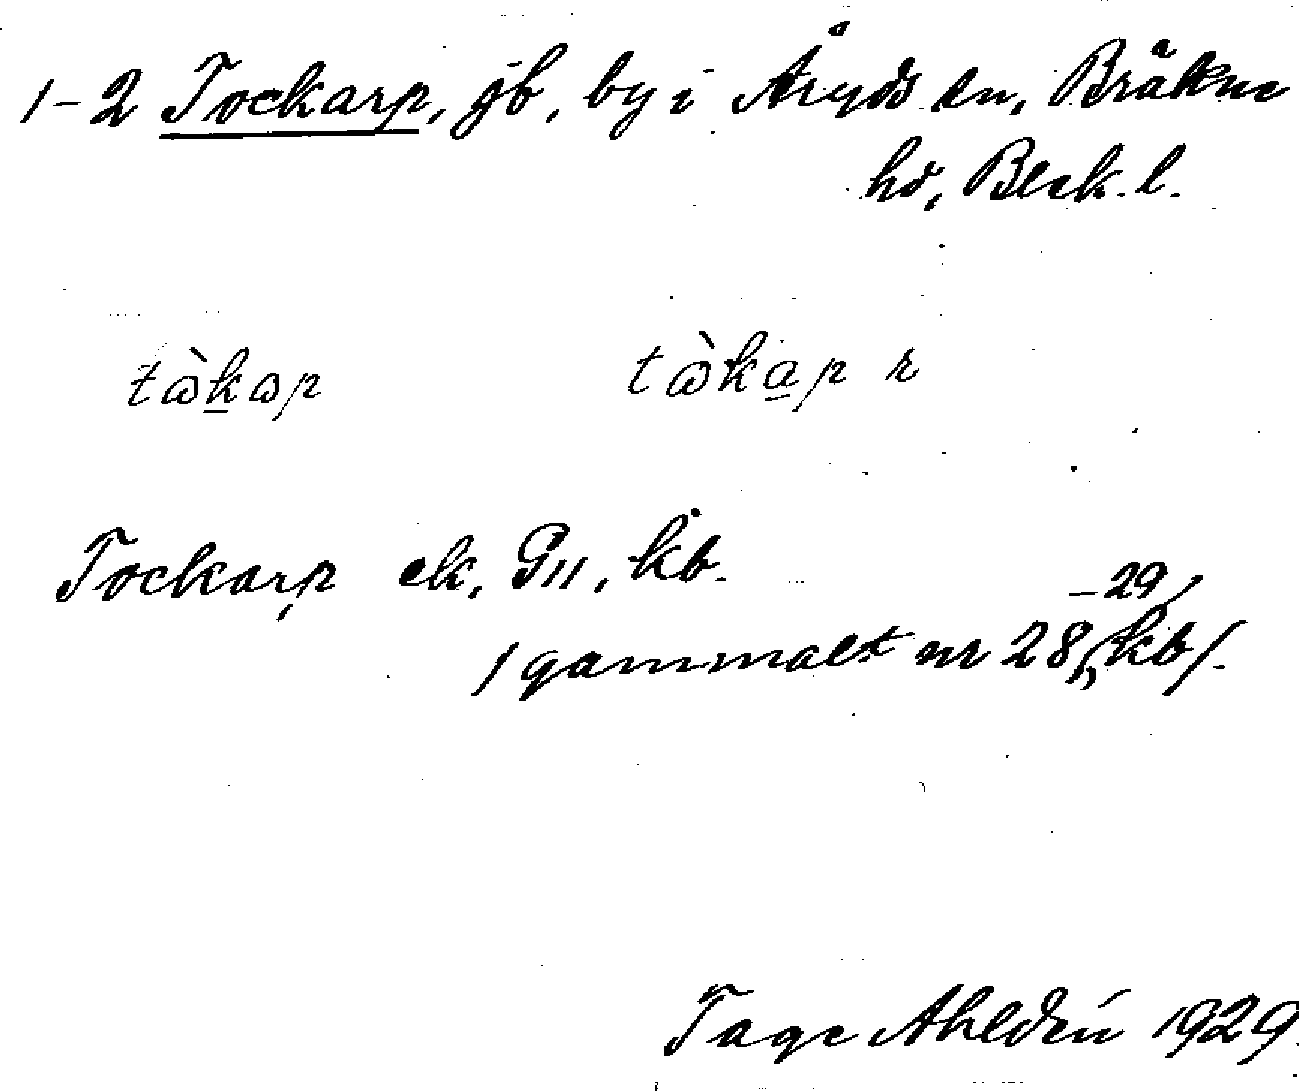 1-2 Tockarp, jb, by i Åryds sn, Bräkne
hd, Blek. l.
tὼkap tὼkap r
Tockarp ek, G11, kb.
-29/
/gammalt nr 28,, kb/.
Tage Ahldén 1929.